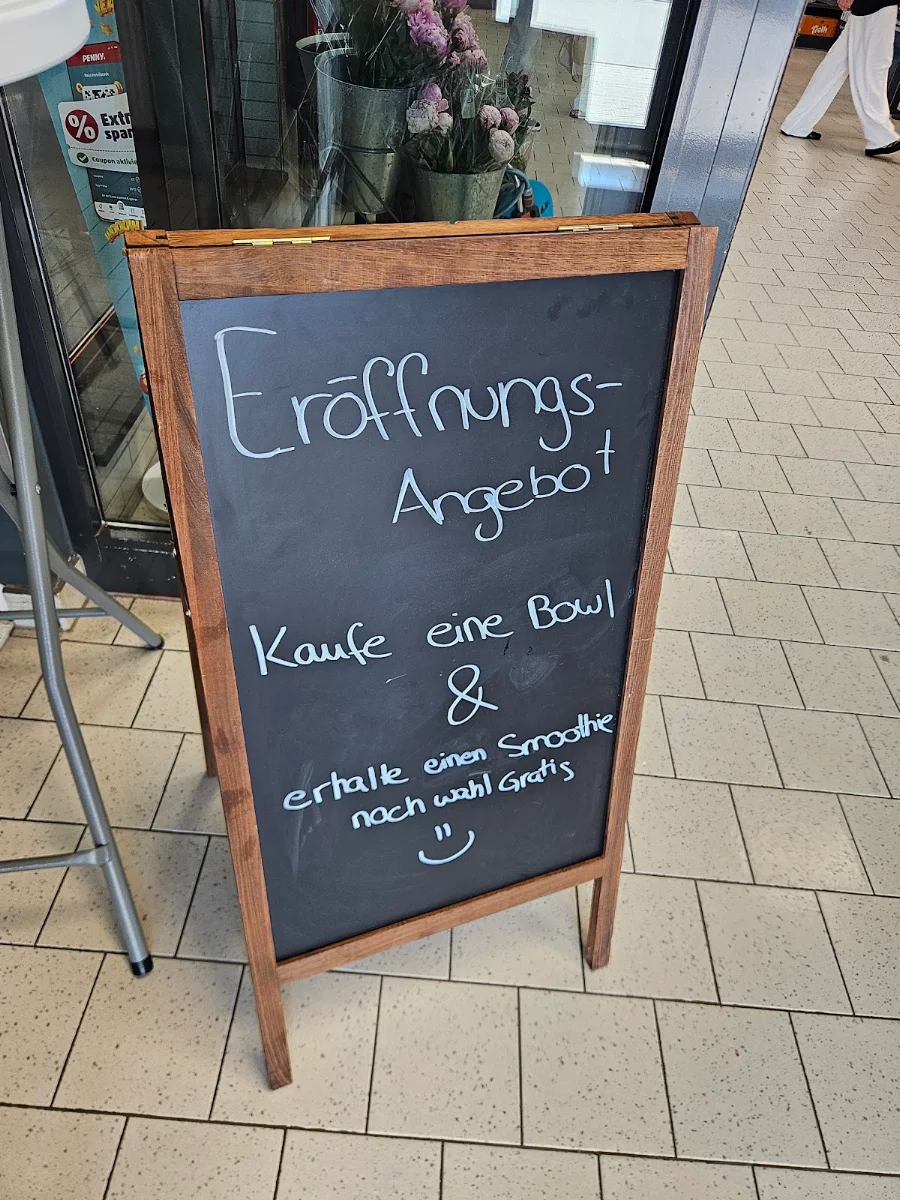 PENNY.
% Extr
spar
Coupon aktivie
Eröffnungs-
Angebot
Kaufe eine Bowl
&
erhalte einen Smoothie
nach wahl Gratis